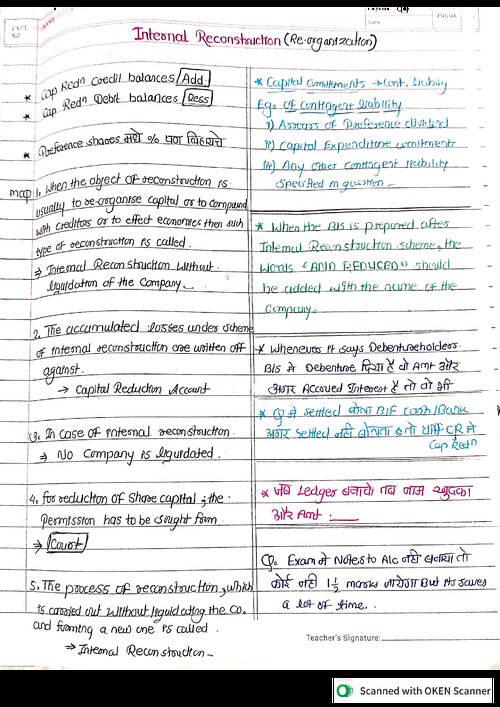 EXPT. NO.
Date
Internal Reconstruction (Re-organization)
* Cap Redⁿ Credit balances Add
* Cap Redⁿ Debit balances Less
* Preference shares मधे % पण लिहायचे
MCQ 1. When the object of reconstruction is
usually to re-organise capital or to compound
with creditors or to effect economies then such
type of reconstruction is called.
⇒ Internal Reconstruction without
liquidation of the Company.
2. The accumulated losses under scheme
of internal reconstruction are written off
against.
→ Capital Reduction Account
3. In case of internal reconstruction.
⇒ No Company is liquidated.
4. for reduction of Share capital, the
Permission has to be sought from
⇒ Court
5. The process of reconstruction, which
is carried out without liquidating the Co.
and forming a new one is called.
⇒ Internal Reconstruction
* Capital Commitments → Cont. liability
Eg. of Contingent liability
i) Arrears of Preference dividend
ii) Capital Expenditure commitments
iii) Any other contingent liability
specified in question
* When the B/S is prepared after
Internal Reconstruction scheme, the
words "AND REDUCED" should
be added with the name of the
Company.
* Whenever it says Debentureholders
B/S मे Debenture दिया है वो Amt और
अगर Accrued Interest है तो वो भी
* Q मे settled बोला B/F Cash/Bank
अगर settled नही बोलता है तो CR मे
Cap Redⁿ
* जब Ledger बनाओ तब नाम खुदका
और Amt.
Q. Exam मे Notes to A/c नही बनाया तो
कोई नही 1½ marks जायेगा But its saves
a lot of time..
Teacher's Signature:
Scanned with OKEN Scanner